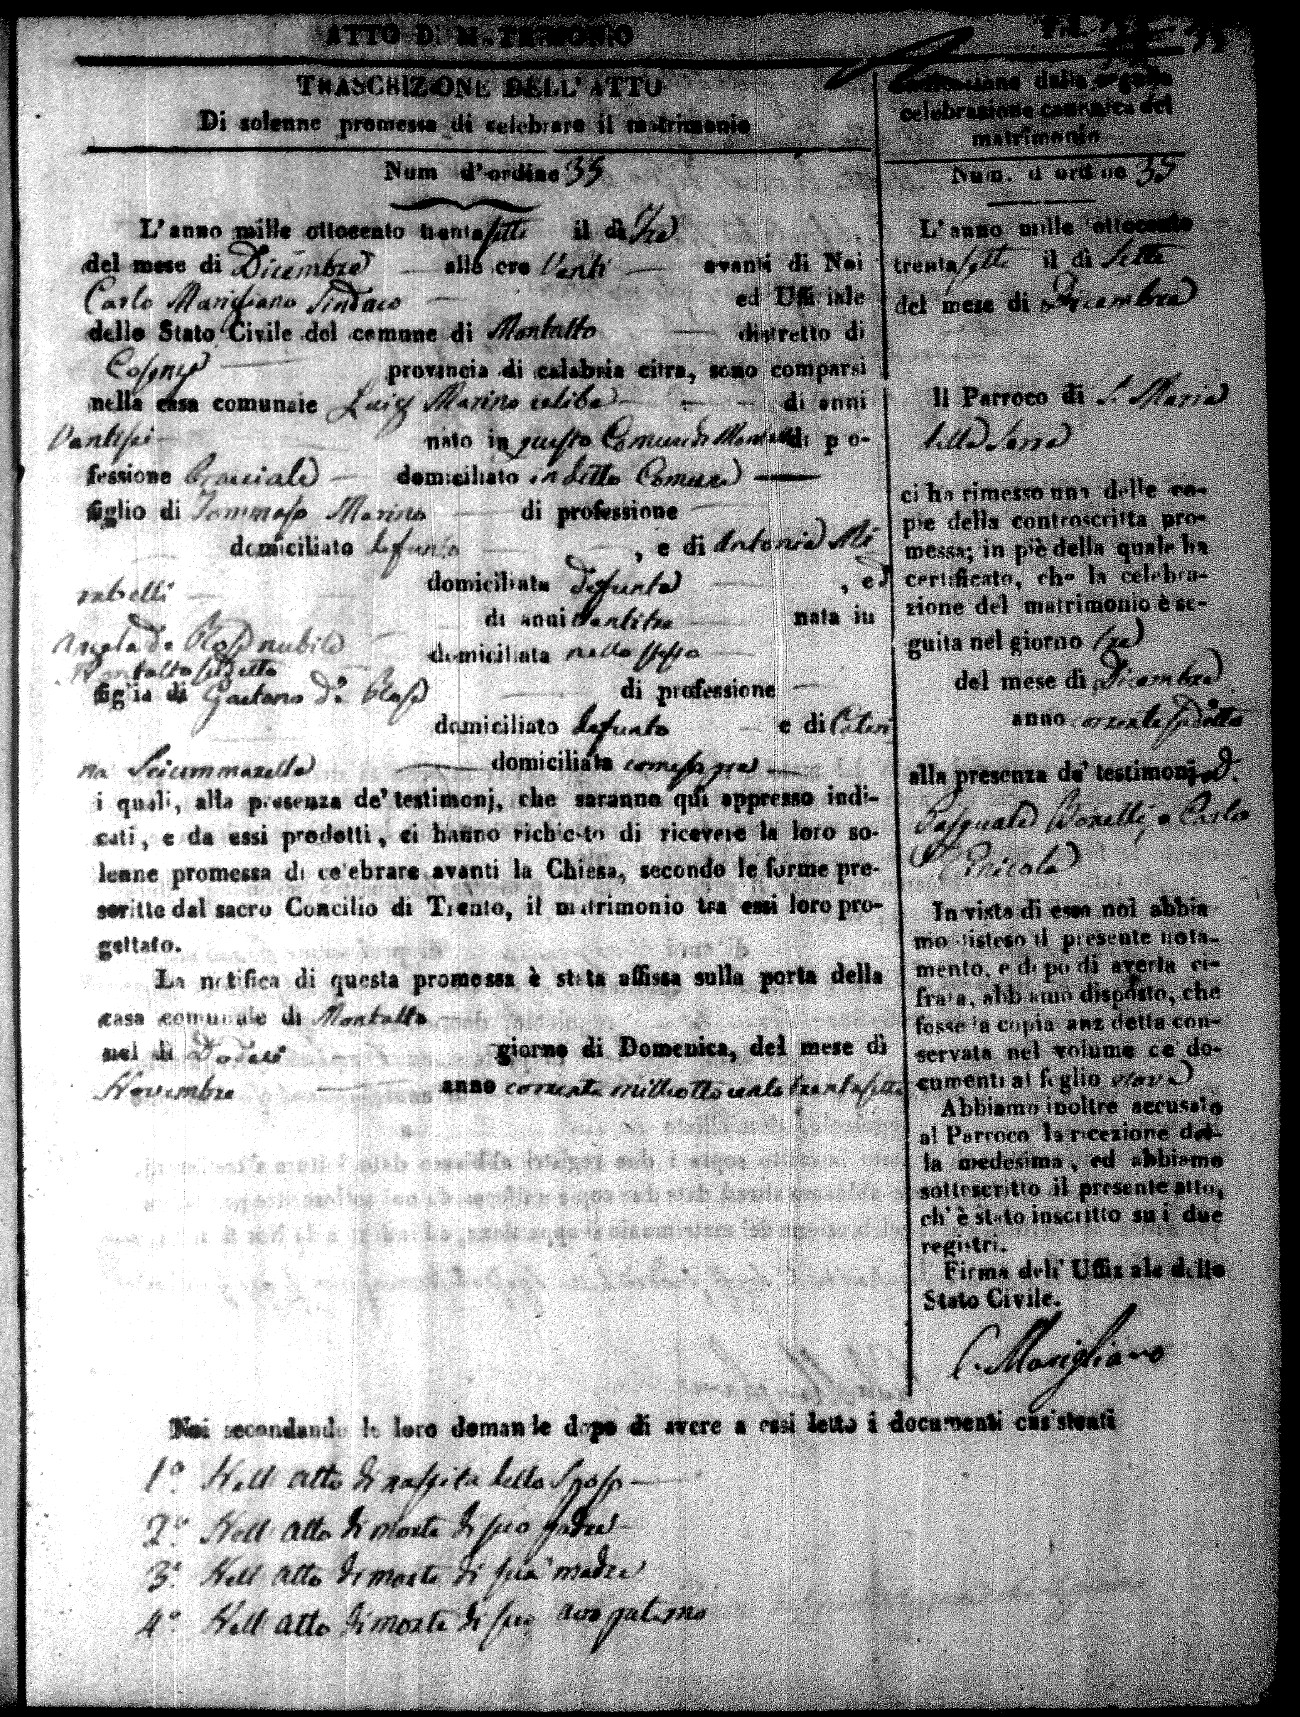 ATTO DI MATRIMONIO
TRASCRIZIONE DELL' ATTO
Di solenne promessa di celebrare il matrimonio
Num d'ordine 35
L' anno mille ottocento trentasette il dì Tre
del mese di Dicembre alle ore Venti avanti di Noi
Carlo Marigliano Sindaco ed Uffiziale
dello Stato Civile del comune di Montalto distretto di
Cosenza provincia di calabria citra, sono comparsi
nella casa comunale Luigi Marino celibe di anni
Ventisei nato in questo Comune di Montalto di pro-
fessione Bracciale domiciliato in detto Comune
figlio di Tommaso Marino di professione
domiciliato defunto , e di Antonia Mi
rabelli domiciliata defunta , ed
di anni ventitre nata in
Angela de Rose nubile
domiciliata nello stesso
Montalto sudetto
figlia di Gaetano de Rose di professione
domiciliato defunto e di Cateri
na Sciummarella domiciliata come sopra
i quali, alla presenza de' testimonj, che saranno qui appresso indi-
cati, e da essi prodotti, ci hanno richiesto di ricevere la loro so-
lenne promessa di celebrare avanti la Chiesa, secondo le forme pre-
scritte dal sacro Concilio di Trento, il matrimonio tra essi loro pro-
gettato.
La notifica di questa promessa è stata affissa sulla porta della
casa comunale di Montalto
nel dì Dodeci giorno di Domenica, del mese di
Novembre anno corrente milleottocento trentasette
Noi secondando le loro domande dopo di avere a essi letto i documenti consistenti
1.° Nell atto di nascita dello Sposo
2.° Nell atto di morte di suo padre
3.° Nell atto di morte di sua madre
4.° Nell atto di morte di suo avo paterno
celebrazione canonica del
matrimonio
Num. d'ordine 35
L' anno mille ottocento
trentasette il dì Sette
del mese di Dicembre
Il Parroco di S. Maria
della Serra
ci ha rimesso una delle co-
pie della controscritta pro-
messa; in piè della quale ha
certificato, che la celebra-
zione del matrimonio è se-
guita nel giorno tre
del mese di Dicembre
anno corrente sudetto
alla presenza de' testimonj
Pasquale Bonelli, e Carlo
In vista di essa noi abbia-
mo disteso il presente nota-
mento, e dopo di averla ci-
frata, abbiamo disposto, che
fosse la copia anzidetta con-
servata nel volume de' do-
cumenti al foglio
Abbiamo inoltre accusato
al Parroco la ricezione del-
la medesima, ed abbiamo
sottoscritto il presente atto,
ch' è stato inscritto su i due
registri.
Firma dell' Uffiziale dello
Stato Civile.
C. Marigliano